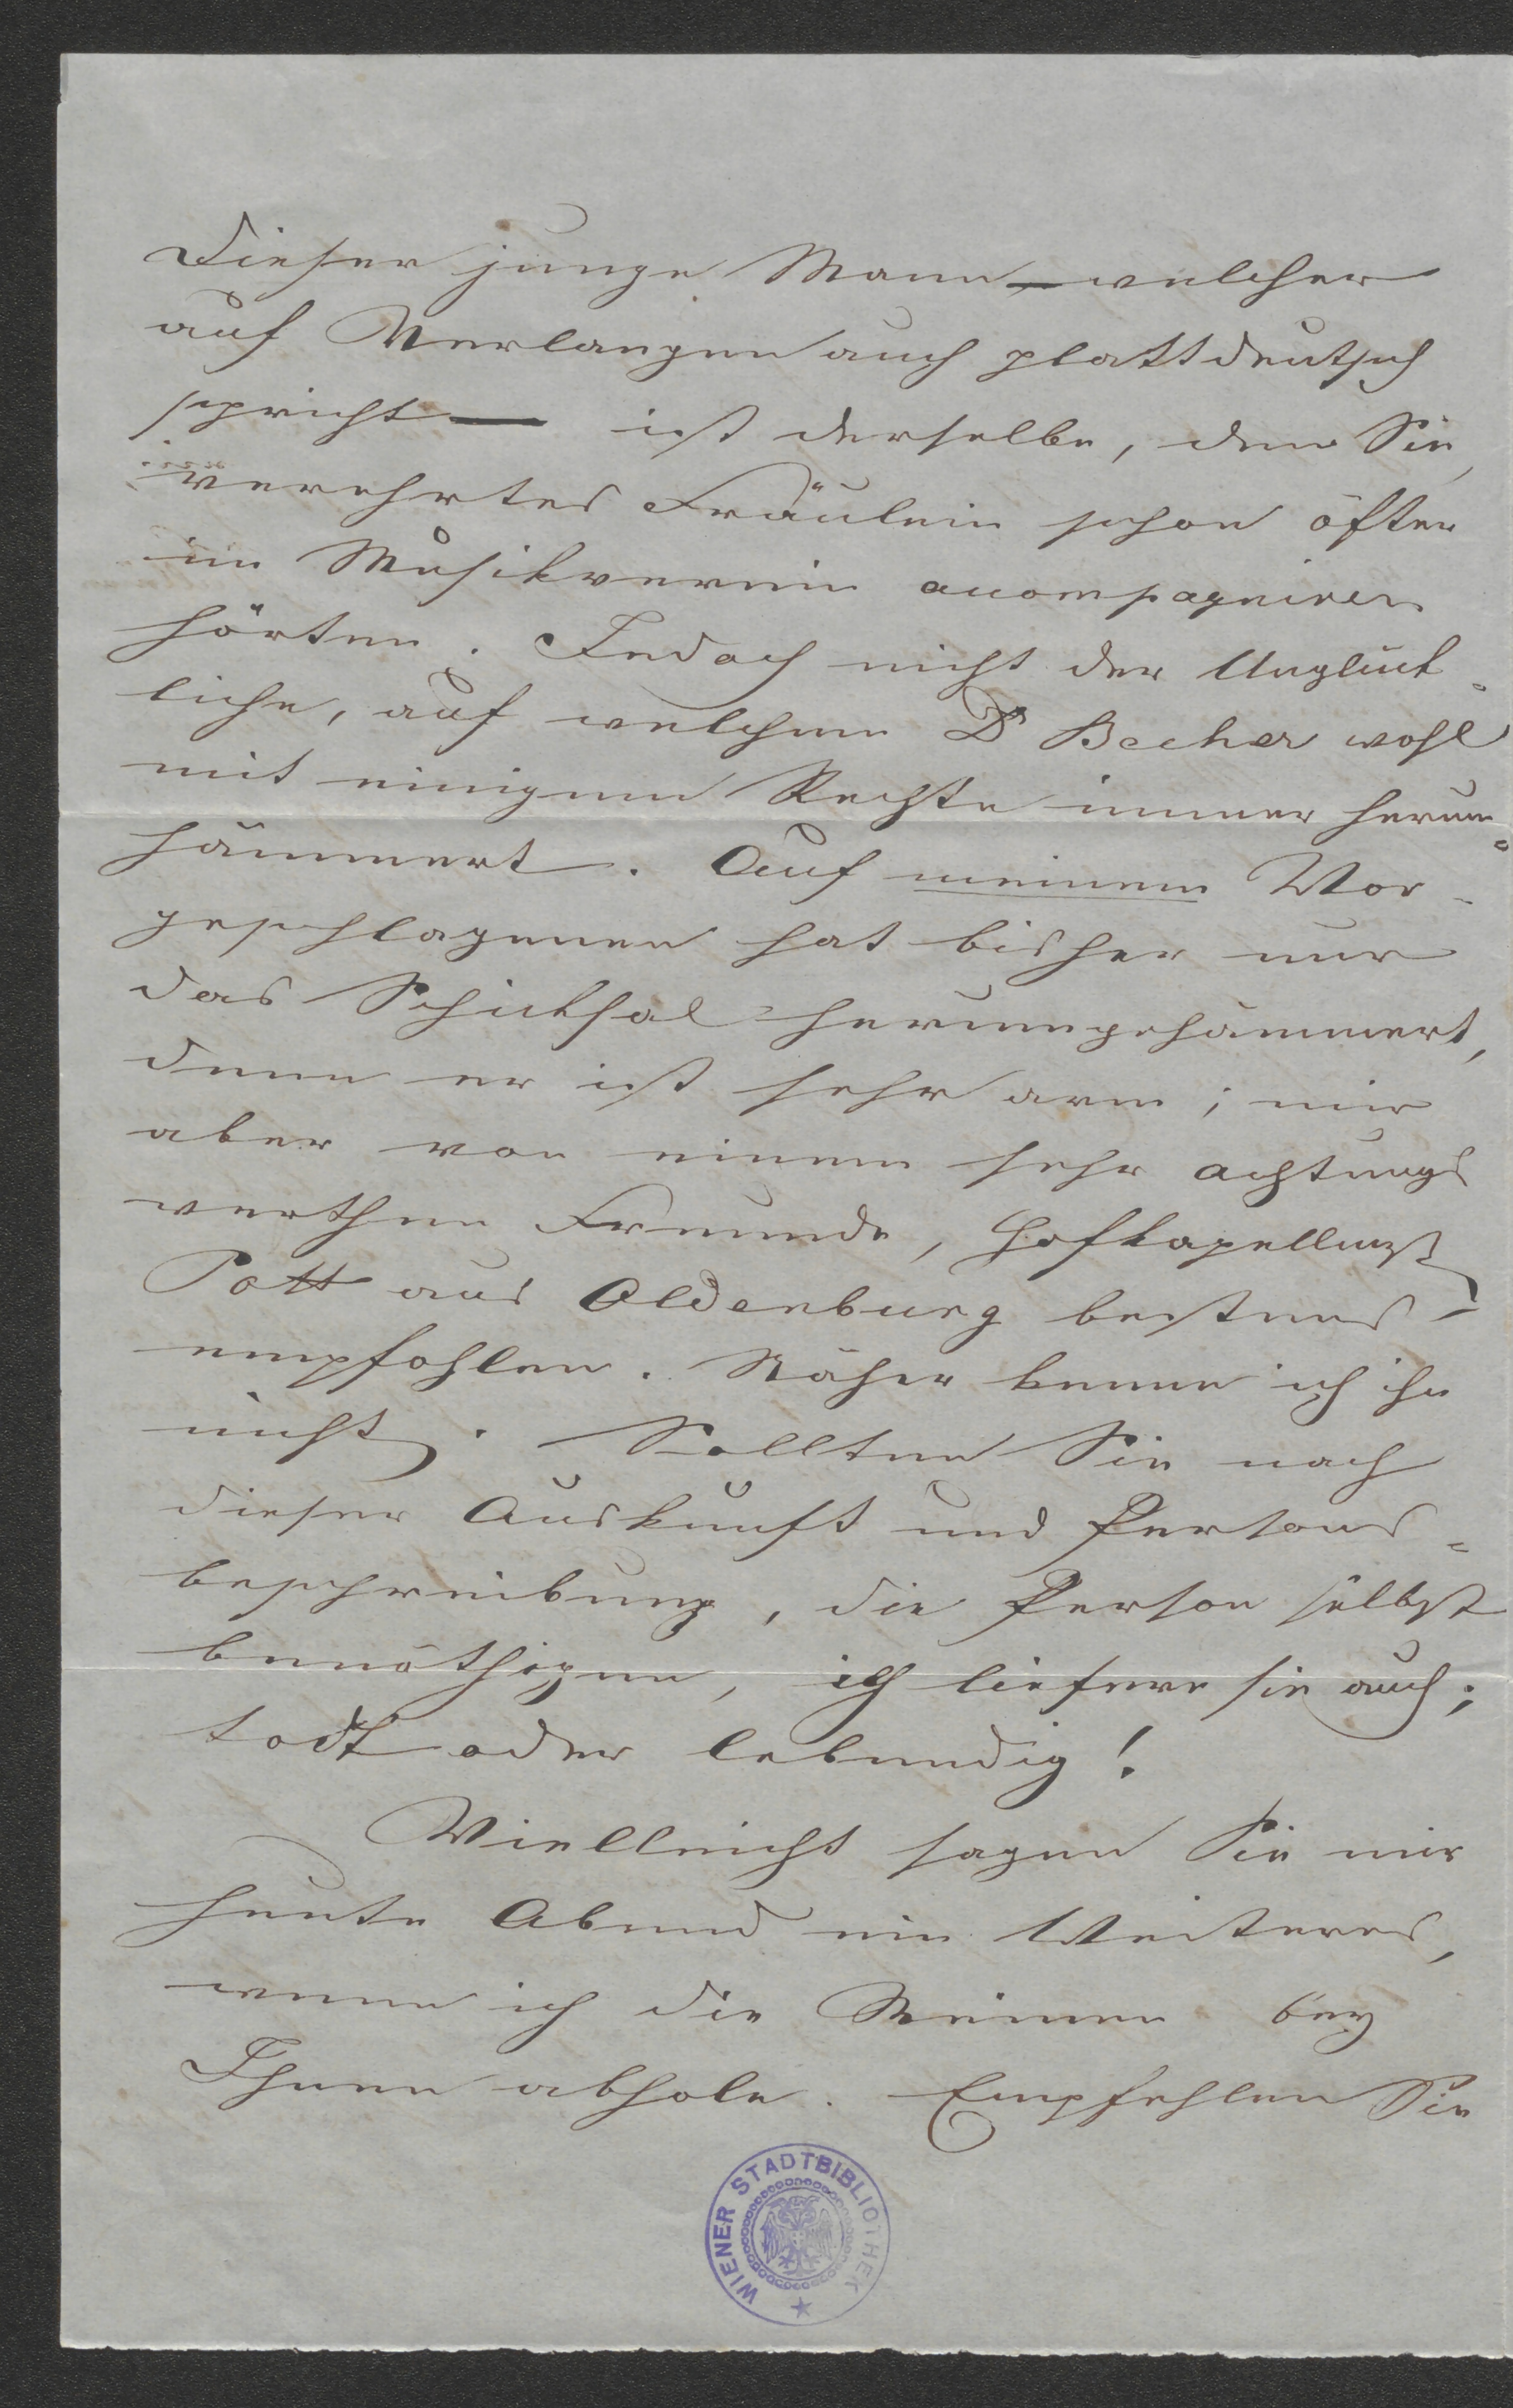 Dieser junge Mann – welcher
auf Verlangen auch plattdeutsch
spricht – ist derselbe, den Sie,
verehrtes Fräulein schon öfter
im Musikverein accompagniren
hörten. Jedoch nicht der Unglück-
liche, auf welchem Dr Becher wohl
mit einigem Rechte immer herum-
hämmert. Auf meinem Vor-
geschlagenen hat bisher nur
das Schicksal herumgehämmert,
denn er ist sehr arm; mir
aber von einem sehr achtungs
werthen Freunde, Hofkapellmst
Pott aus Oldenburg bestens
empfohlen. Näher kenne ich ihn
nicht. Sollten Sie nach
dieser Auskunft und Persons-
beschreibung, die Person selbst
benöthigen, ich liefere sie auch;
todt oder lebendig!
Vielleicht sagen Sie mir
heute Abend ein Weiteres,
wenn ich die Meinen bey
Ihnen abhole. Empfehlen Sie
WIENER STADTBIBLIOTHEK